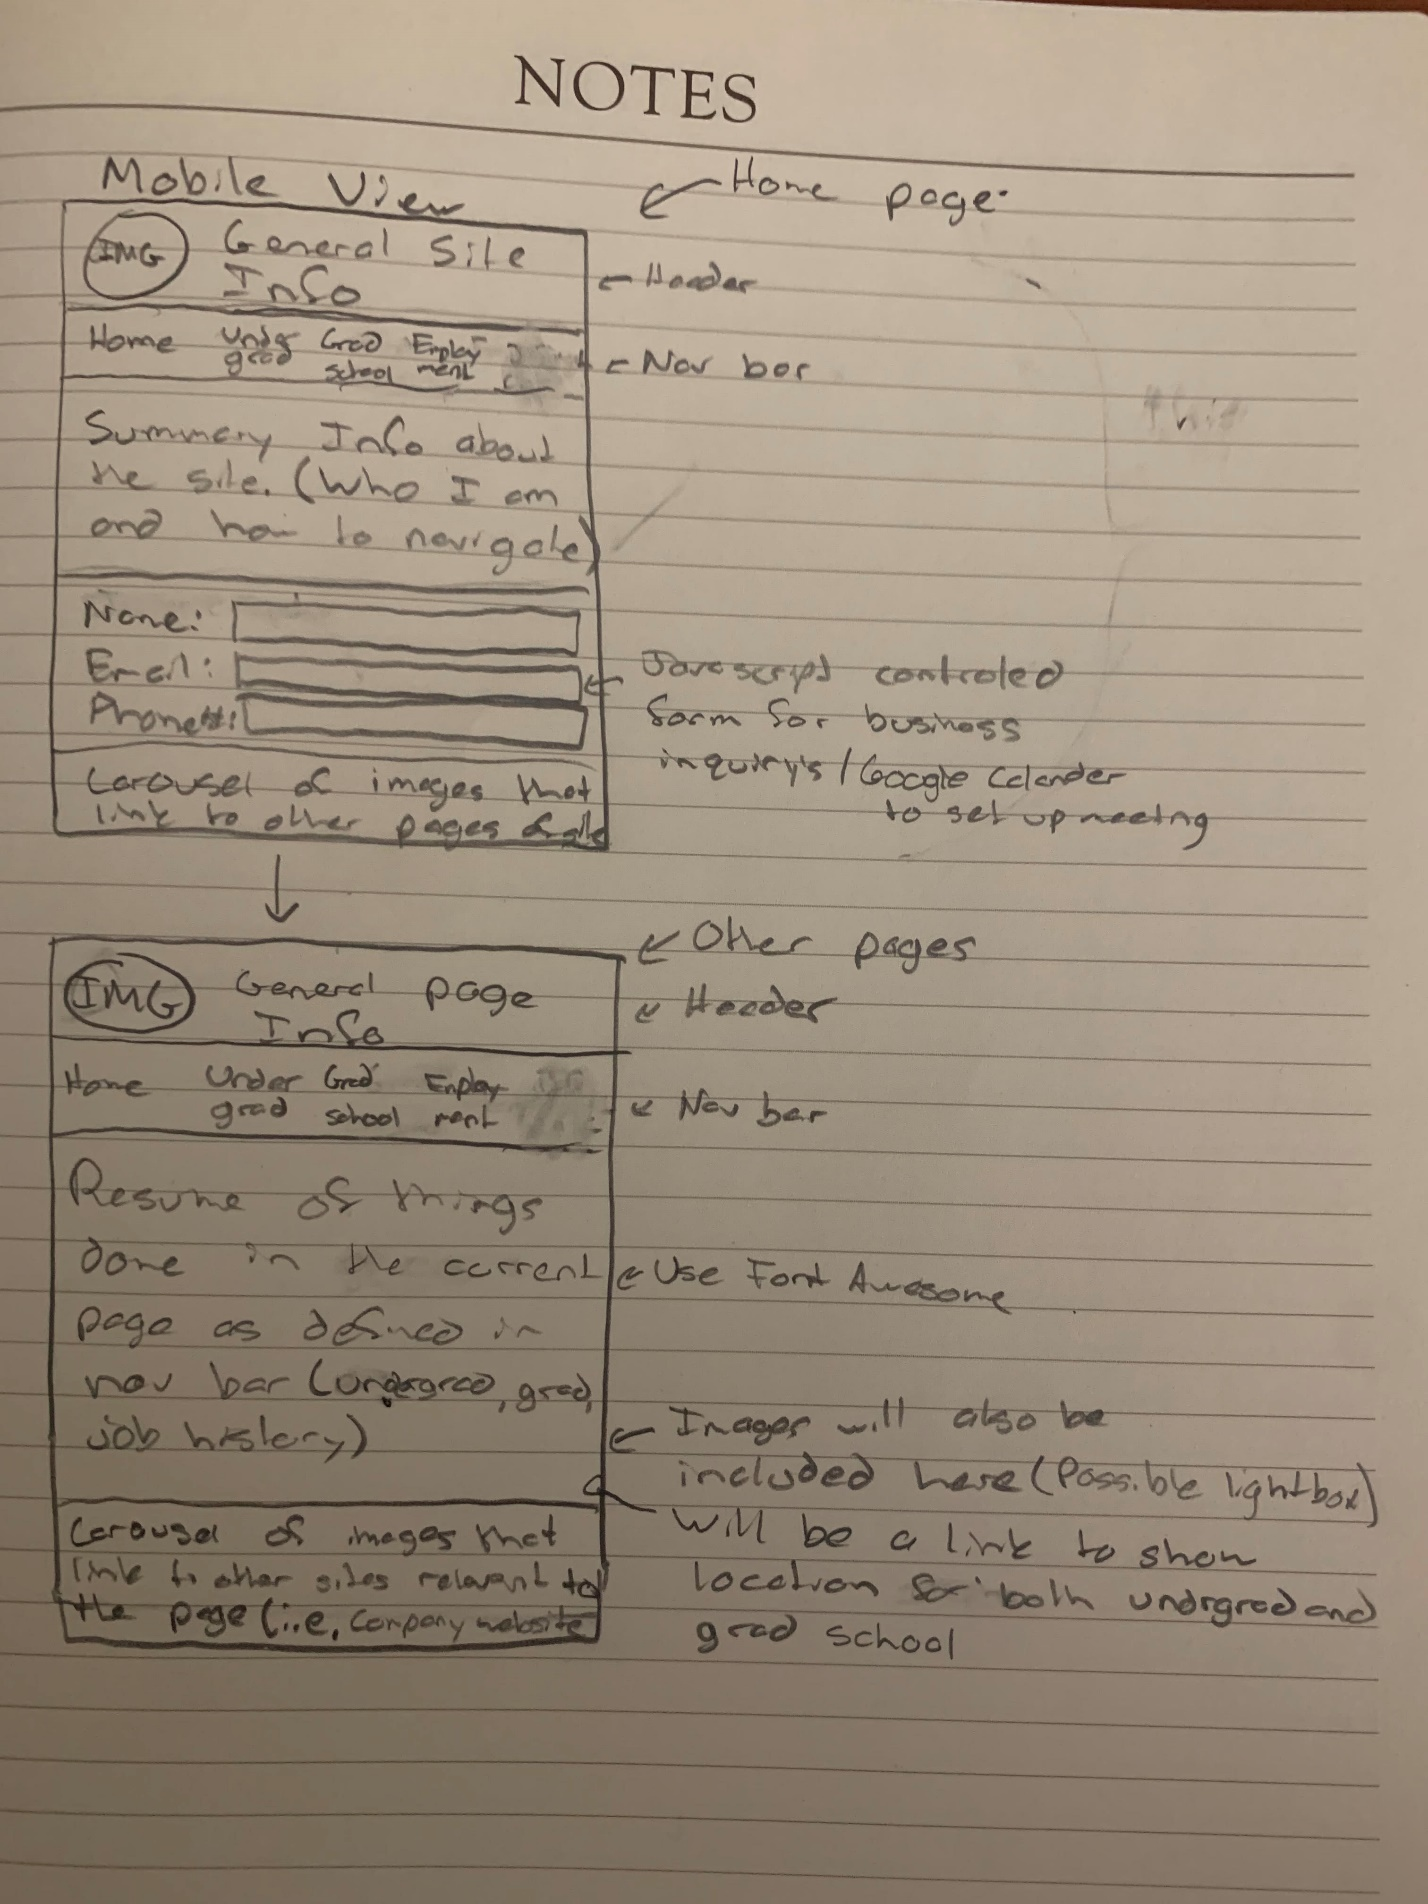 NOTES
Mobile View
Home page:
IMG General Site
Info
Header
Home Undr Grad Employ
grad school ment
Nav bar
Summary Info about
the site. (Who I am
and how to navigate)
Name:
Email:
Phone#:
Javascript controled
form for business
inquiry's / Google Calander
to set up meetng
Carousel of images that
link to other pages of site
Other pages
IMG General page
Info
Header
Home Under Grad Employ
grad school ment
Nav bar
Resume of things
done in the current
page as defined in
nav bar (undergrad, grad,
job history)
Use Font Awesome
Images will also be
included here (Possible lightbox)
Will be a link to show
location for both undrgrad and
grad school
Carousel of images that
link to other sites relevant to
the page (i.e. company website